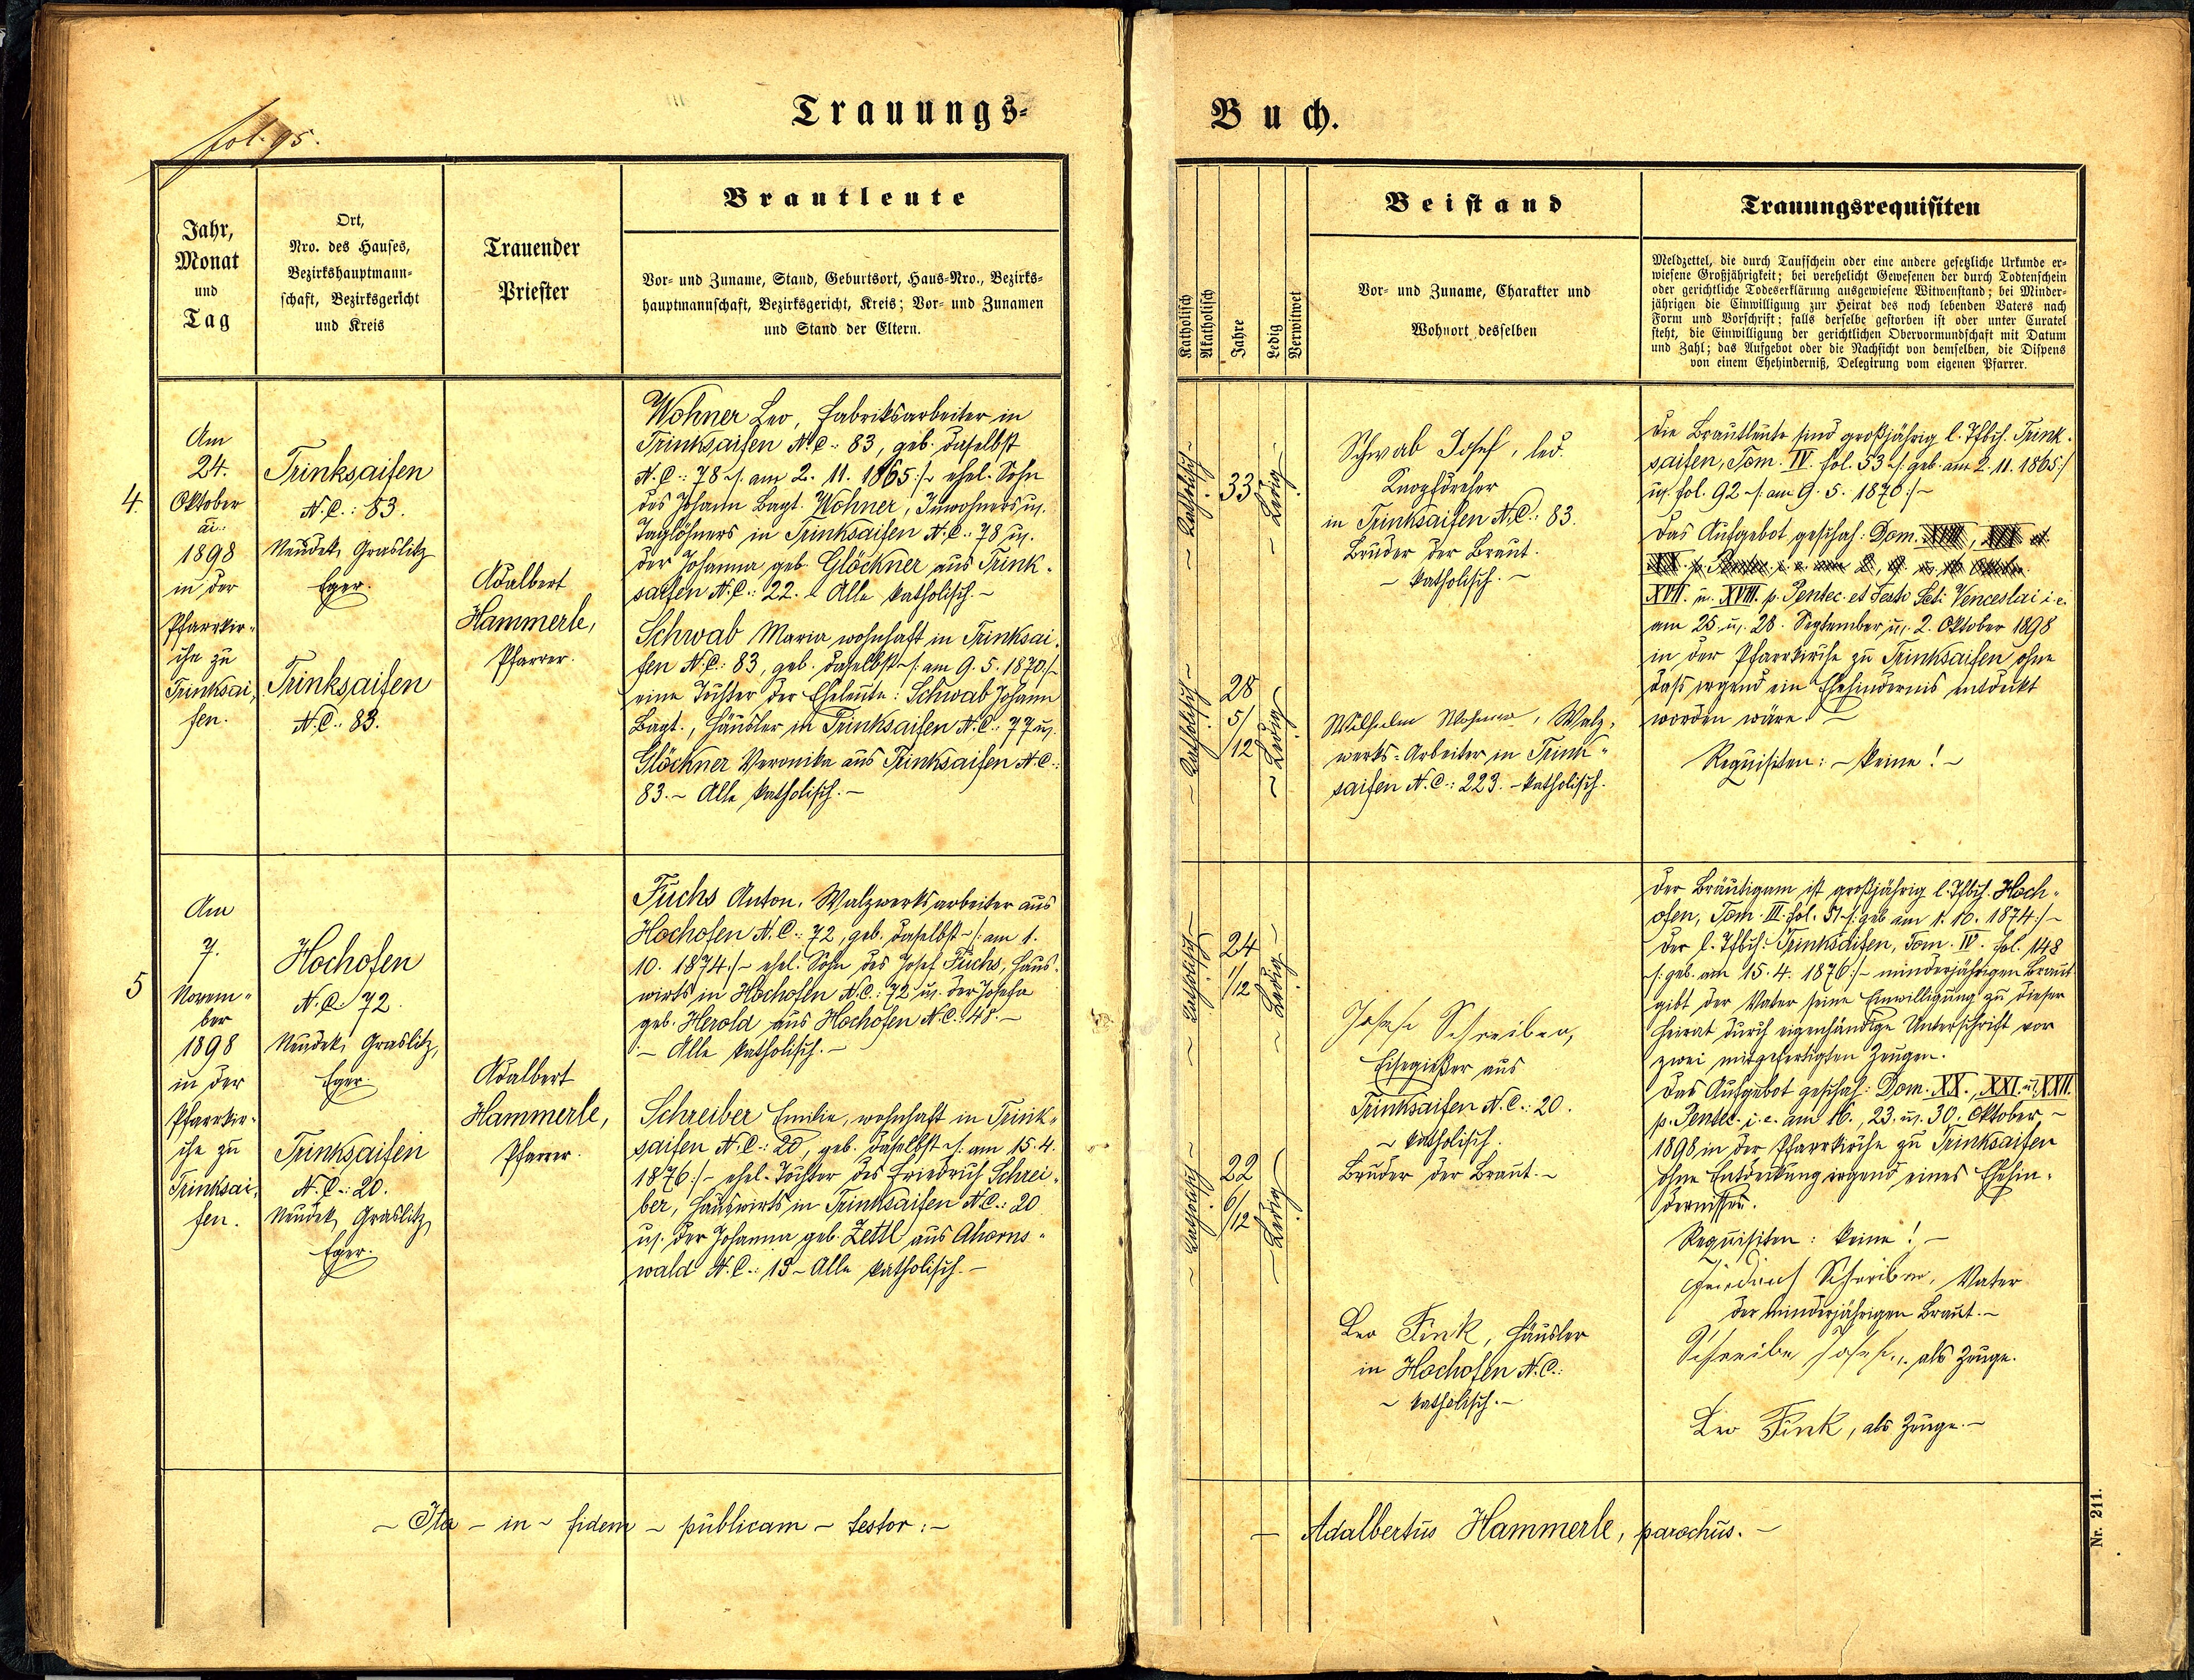 fol. 95.
Trauungs-
Jahr,
Monat
und
Tag
Ort,
Nro. des Hauses,
Bezirkshauptmann-
schaft, Bezirksgericht
und Kreis
Trauender
Priester
Brautleute
Vor- und Zuname, Stand, Geburtsort, Haus-Nro., Bezirks-
hauptmannschaft, Bezirksgericht, Kreis; Vor- und Zunamen
und Stand der Eltern.
4.
Am
24.
Oktober
ai.:
1898
in der
Pfarrkir-
che zu
Trinksai-
fen.
Trinksaifen
N.C.: 83.
Neudek, Graslitz
Eger.
Trinksaifen
N.C.: 83.
Adalbert
Hammerle,
Pfarrer.
Wohner Leo, Fabriksarbeiter in
Trinksaifen N.C.: 83, geb. daselbst
N.C.: 78 /: am 2. 11. 1865 :/ ehel. Sohn
des Johann Bapt. Wohner, Inwohners u.
Taglöhners in Trinksaifen N.C.: 78 u.
der Johanna geb. Glöckner aus Trink-
saifen N.C.: 22. – Alle katholisch. –
Schwab Maria wohnhaft in Trinksai-
fen N.C.: 83, geb. daselbst /: am 9. 5. 1870 :/
eine Tochter der Eheleute: Schwab Johann
Bapt., Häusler in Trinksaifen N.C.: 77 u.
Glöckner Veronika aus Trinksaifen N.C.:
83. – Alle katholisch. –
5
Am
7.
Novem-
ber
1898
in der
Pfarrkir-
che zu
Trinksai-
fen.
Hochofen
N.C. 72.
Neudek, Graslitz,
Eger.
Trinksaifen
N.C.: 20.
Neudek, Graslitz,
Eger.
Adalbert
Hammerle,
Pfarrer.
Fuchs Anton, Walzwerksarbeiter aus
Hochofen N.C.: 72, geb. daselbst – /: am 1.
10. 1874 :/ – ehel. Sohn des Josef Fuchs, Haus-
wirts in Hochofen N.C.: 72 u. der Josefa
geb. Herold aus Hochofen N.C.: 48. –
– Alle katholisch. –
Schreiber Emilie, wohnhaft in Trink-
saifen N.C.: 20, geb. daselbst /: am 15. 4.
1876 :/ – ehel. Tochter des Friedrich Schrei-
ber, Hauswirts in Trinksaifen N.C.: 20
u. der Johanna geb. Zettl aus Ahorns-
wald N.C.: 13 – Alle katholisch. –
– Ita – in – fidem – publicam – testor: –
Buch.
Katholisch
Akatholisch
Jahre
Ledig
Verwitwet
Beistand
Vor- und Zuname, Charakter und
Wohnort desselben
Trauungsrequisiten
Meldzettel, die durch Taufschein oder eine andere gesetzliche Urkunde er-
wiesene Großjährigkeit; bei verehelicht Gewesenen der durch Todtenschein
oder gerichtliche Todeserklärung ausgewiesene Witwenstand; bei Minder-
jährigen die Einwilligung zur Heirat des noch lebenden Vaters nach
Form und Vorschrift; falls derselbe gestorben ist oder unter Curatel
steht, die Einwilligung der gerichtlichen Obervormundschaft mit Datum
und Zahl; das Aufgebot oder die Nachsicht von demselben, die Dispens
von einem Ehehinderniß, Delegirung vom eigenen Pfarrer.
– Katholisch –
33
– Ledig –
– Katholisch –
28
5/
/12
– Ledig –
Schwab Josef, led.
Knopfdreher
in Trinksaifen N.C.: 83.
Bruder der Braut.
– katholisch. –
Wilhelm Wohner, Walz-
werks-Arbeiter in Trink-
saifen N.C.: 223. – katholisch.
Die Brautleute sind großjährig l. Tfbch. Trink-
saifen, Tom. IV. fol. 53 /: geb. am 2. 11. 1865 :/
u. fol. 92 /: am 9. 5. 1870 :/ –
Das Aufgebot geschah: Dom.
XVII. u. XVIII. p. Pentec. et Festo Scti Venceslai i. e.
am 25. u. 28. September u. 2. Oktober 1898
in der Pfarrkirche zu Trinksaifen ohne
daß irgend ein Ehehindernis entdeckt
worden wäre. –
Requisiten: – keine! –
– Katholisch –
24
1/
/12
– Ledig –
– Katholisch –
22
6/
/12
– Ledig –
Josef Schreiber,
Eisegießer aus
Trinksaifen N.C.: 20.
– katholisch.
Bruder der Braut. –
Leo Fink, Häusler
in Hochofen N.C.:
– katholisch. –
Der Bräutigam ist großjährig l. Tfbch. Hoch-
ofen, Tom. III. fol. 51 /: geb. am 1. 10. 1874 :/ –
Der l. Tfbch. Trinksaifen, Tom. IV. fol. 148
/: geb. am 15. 4. 1876 :/ – minderjährigen Braut
gibt der Vater seine Einwilligung zu dieser
Heirat durch eigenhändige Unterschrift vor
zwei mitgefertigten Zeugen.
Das Aufgebot geschah: Dom. XX., XXI. u. XXII.
p. Pentec. i. e. am 16., 23. u. 30. Oktober –
1898 in der Pfarrkirche zu Trinksaifen
ohne Entdeckung irgend eines Ehehin-
dernisses.
Requisiten: keine! –
Friedrich Schreiber, Vater
der minderjährigen Braut. –
Schreiber Josef, als Zeuge.
Leo Fink, als Zeuge. –
– Adalbertus Hammerle, parochus. –
Nr. 211.